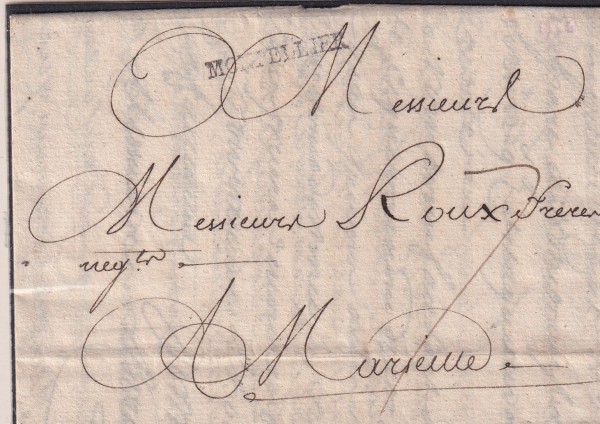 MONPELLIER
A Messieurs
Messieurs Roux Freres
negts
A Marseille